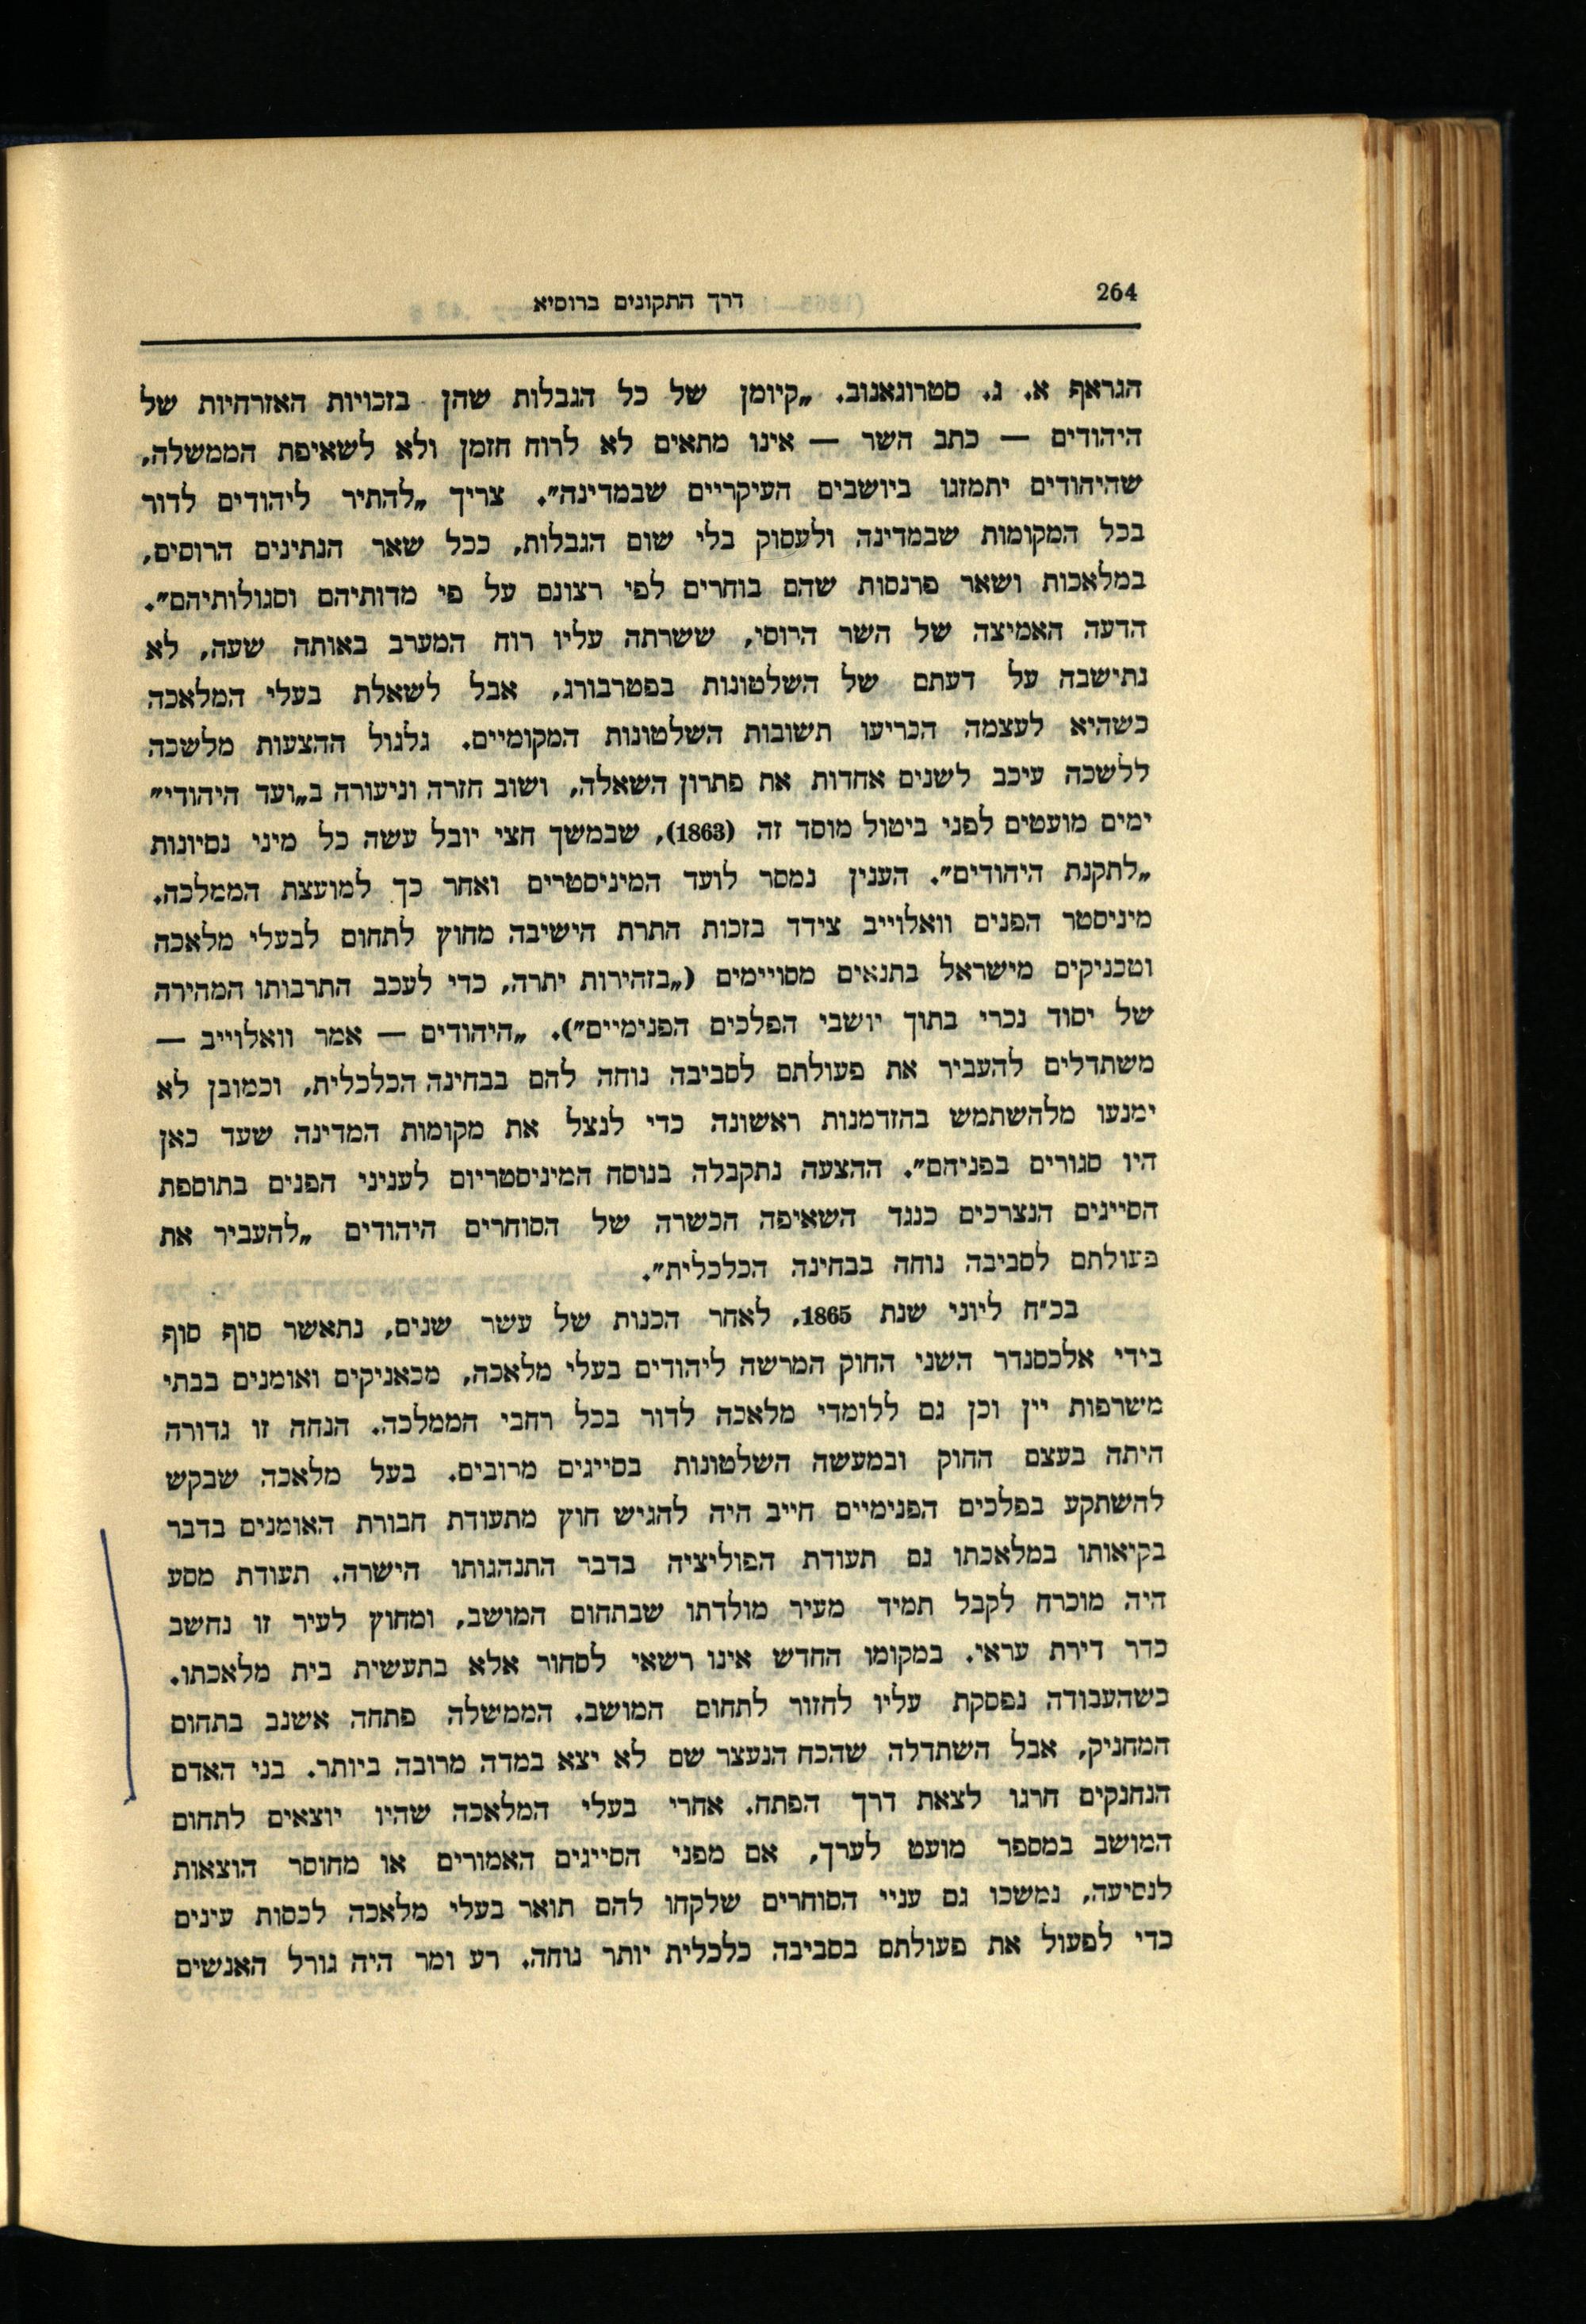 264
דרך התקונים ברוסיא
הגראף א. ג. סטרוגאנוב. „קיומן של כל הגבלות שהן בזכויות האזרחיות של
היהודים — כתב השר — אינו מתאים לא לרוח הזמן ולא לשאיפת הממשלה,
שהיהודים יתמזגו ביושבים העיקריים שבמדינה”. צריך „להתיר ליהודים לדור
בכל המקומות שבמדינה ולעסוק בלי שום הגבלות, ככל שאר הנתינים הרוסים,
במלאכות ושאר פרנסות שהם בוחרים לפי רצונם על פי מדותיהם וסגולותיהם”.
הדעה האמיצה של השר הרוסי, ששרתה עליו רוח המערב באותה שעה, לא
נתישבה על דעתם של השלטונות בפטרבורג, אבל לשאלת בעלי המלאכה
כשהיא לעצמה הכריעו תשובות השלטונות המקומיים. גלגול ההצעות מלשכה
ללשכה עיכב לשנים אחדות את פתרון השאלה, ושוב חזרה וניעורה ב„ועד היהודי”
ימים מועטים לפני ביטול מוסד זה (1863), שבמשך חצי יובל עשה כל מיני נסיונות
„לתקנת היהודים”. הענין נמסר לועד המיניסטרים ואחר כך למועצת הממלכה.
מיניסטר הפנים וואלוייב צידד בזכות התרת הישיבה מחוץ לתחום לבעלי מלאכה
וטכניקים מישראל בתנאים מסויימים („בזהירות יתרה, כדי לעכב התרבותו המהירה
של יסוד נכרי בתוך יושבי הפלכים הפנימיים”). „היהודים — אמר וואלוייב —
משתדלים להעביר את פעולתם לסביבה נוחה להם בבחינה הכלכלית, וכמובן לא
ימנעו מלהשתמש בהזדמנות ראשונה כדי לנצל את מקומות המדינה שעד כאן
היו סגורים בפניהם”. ההצעה נתקבלה בנוסח המיניסטריום לעניני הפנים בתוספת
הסייגים הנצרכים כנגד השאיפה הכשרה של הסוחרים היהודים „להעביר את
פעולתם לסביבה נוחה בבחינה הכלכלית”.
בכ״ח ליוני שנת 1865, לאחר הכנות של עשר שנים, נתאשר סוף סוף
בידי אלכסנדר השני החוק המרשה ליהודים בעלי מלאכה, מכאניקים ואומנים בבתי
משרפות יין וכן גם ללומדי מלאכה לדור בכל רחבי הממלכה. הנחה זו גדורה
היתה בעצם החוק ובמעשה השלטונות בסייגים מרובים. בעל מלאכה שבקש
להשתקע בפלכים הפנימיים חייב היה להגיש חוץ מתעודת חבורת האומנים בדבר
בקיאותו במלאכתו גם תעודת הפוליציה בדבר התנהגותו הישרה. תעודת מסע
היה מוכרח לקבל תמיד מעיר מולדתו שבתחום המושב, ומחוץ לעיר זו נחשב
כדר דירת עראי. במקומו החדש אינו רשאי לסחור אלא בתעשית בית מלאכתו.
כשהעבודה נפסקת עליו לחזור לתחום המושב. הממשלה פתחה אשנב בתחום
המחניק, אבל השתדלה שהכח הנעצר שם לא יצא במדה מרובה ביותר. בני האדם
הנחנקים חרגו לצאת דרך הפתח. אחרי בעלי המלאכה שהיו יוצאים לתחום
המושב במספר מועט לערך, אם מפני הסייגים האמורים או מחוסר הוצאות
לנסיעה, נמשכו גם עניי הסוחרים שלקחו להם תואר בעלי מלאכה לכסות עינים
כדי לפעול את פעולתם בסביבה כלכלית יותר נוחה. רע ומר היה גורל האנשים